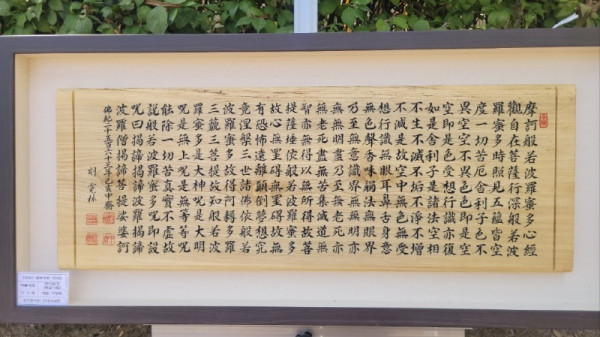 摩訶般若波羅蜜多心經
觀自在菩薩行深般若波
羅蜜多時照見五蘊皆空
度一切苦厄舍利子色不
異空空不異色色即是空
空即是色受想行識亦復
如是舍利子是諸法空相
不生不滅不垢不淨不增
不減是故空中無色無受
想行識無眼耳鼻舌身意
無色聲香味觸法無眼界
乃至無意識界無無明亦
無無明盡乃至無老死亦
無老死盡無苦集滅道無
智亦無得以無所得故菩
提薩埵依般若波羅蜜多
故心無罣碍無罣碍故無
有恐怖遠離顚倒夢想究
竟涅槃三世諸佛依般若
波羅蜜多故得阿耨多羅
三藐三菩提故知般若波
羅蜜多是大神呪是大明
呪是無上呪是無等等呪
能除一切苦眞實不虛故
說般若波羅蜜多呪即說
呪曰揭諦揭諦波羅揭諦
波羅僧揭諦菩提娑婆訶
佛紀二千五百六十三年己亥中